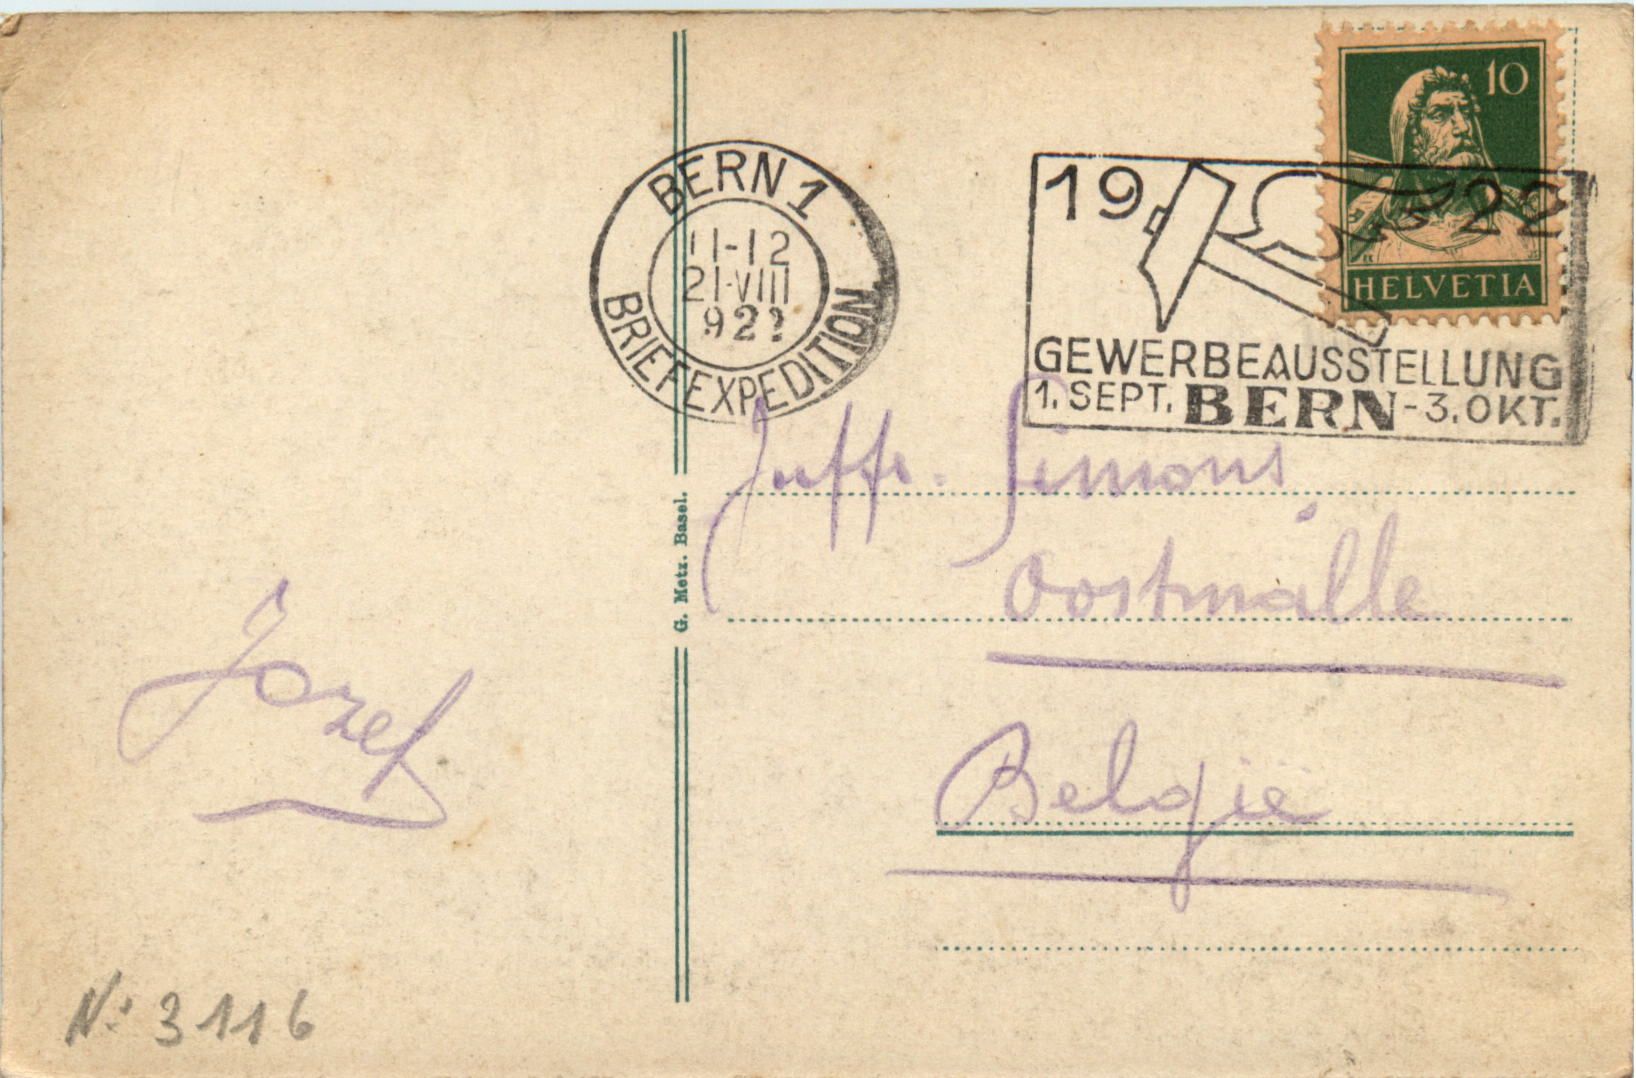 10
HELVETIA
BERN 1
11-12
21·VIII
922
BRIEFEXPEDITION
1922
GEWERBEAUSSTELLUNG
1. SEPT. BERN - 3. OKT.
Juffr. Simons
Oostmalle
België
G. Metz. Basel.
Jozef
N: 3116